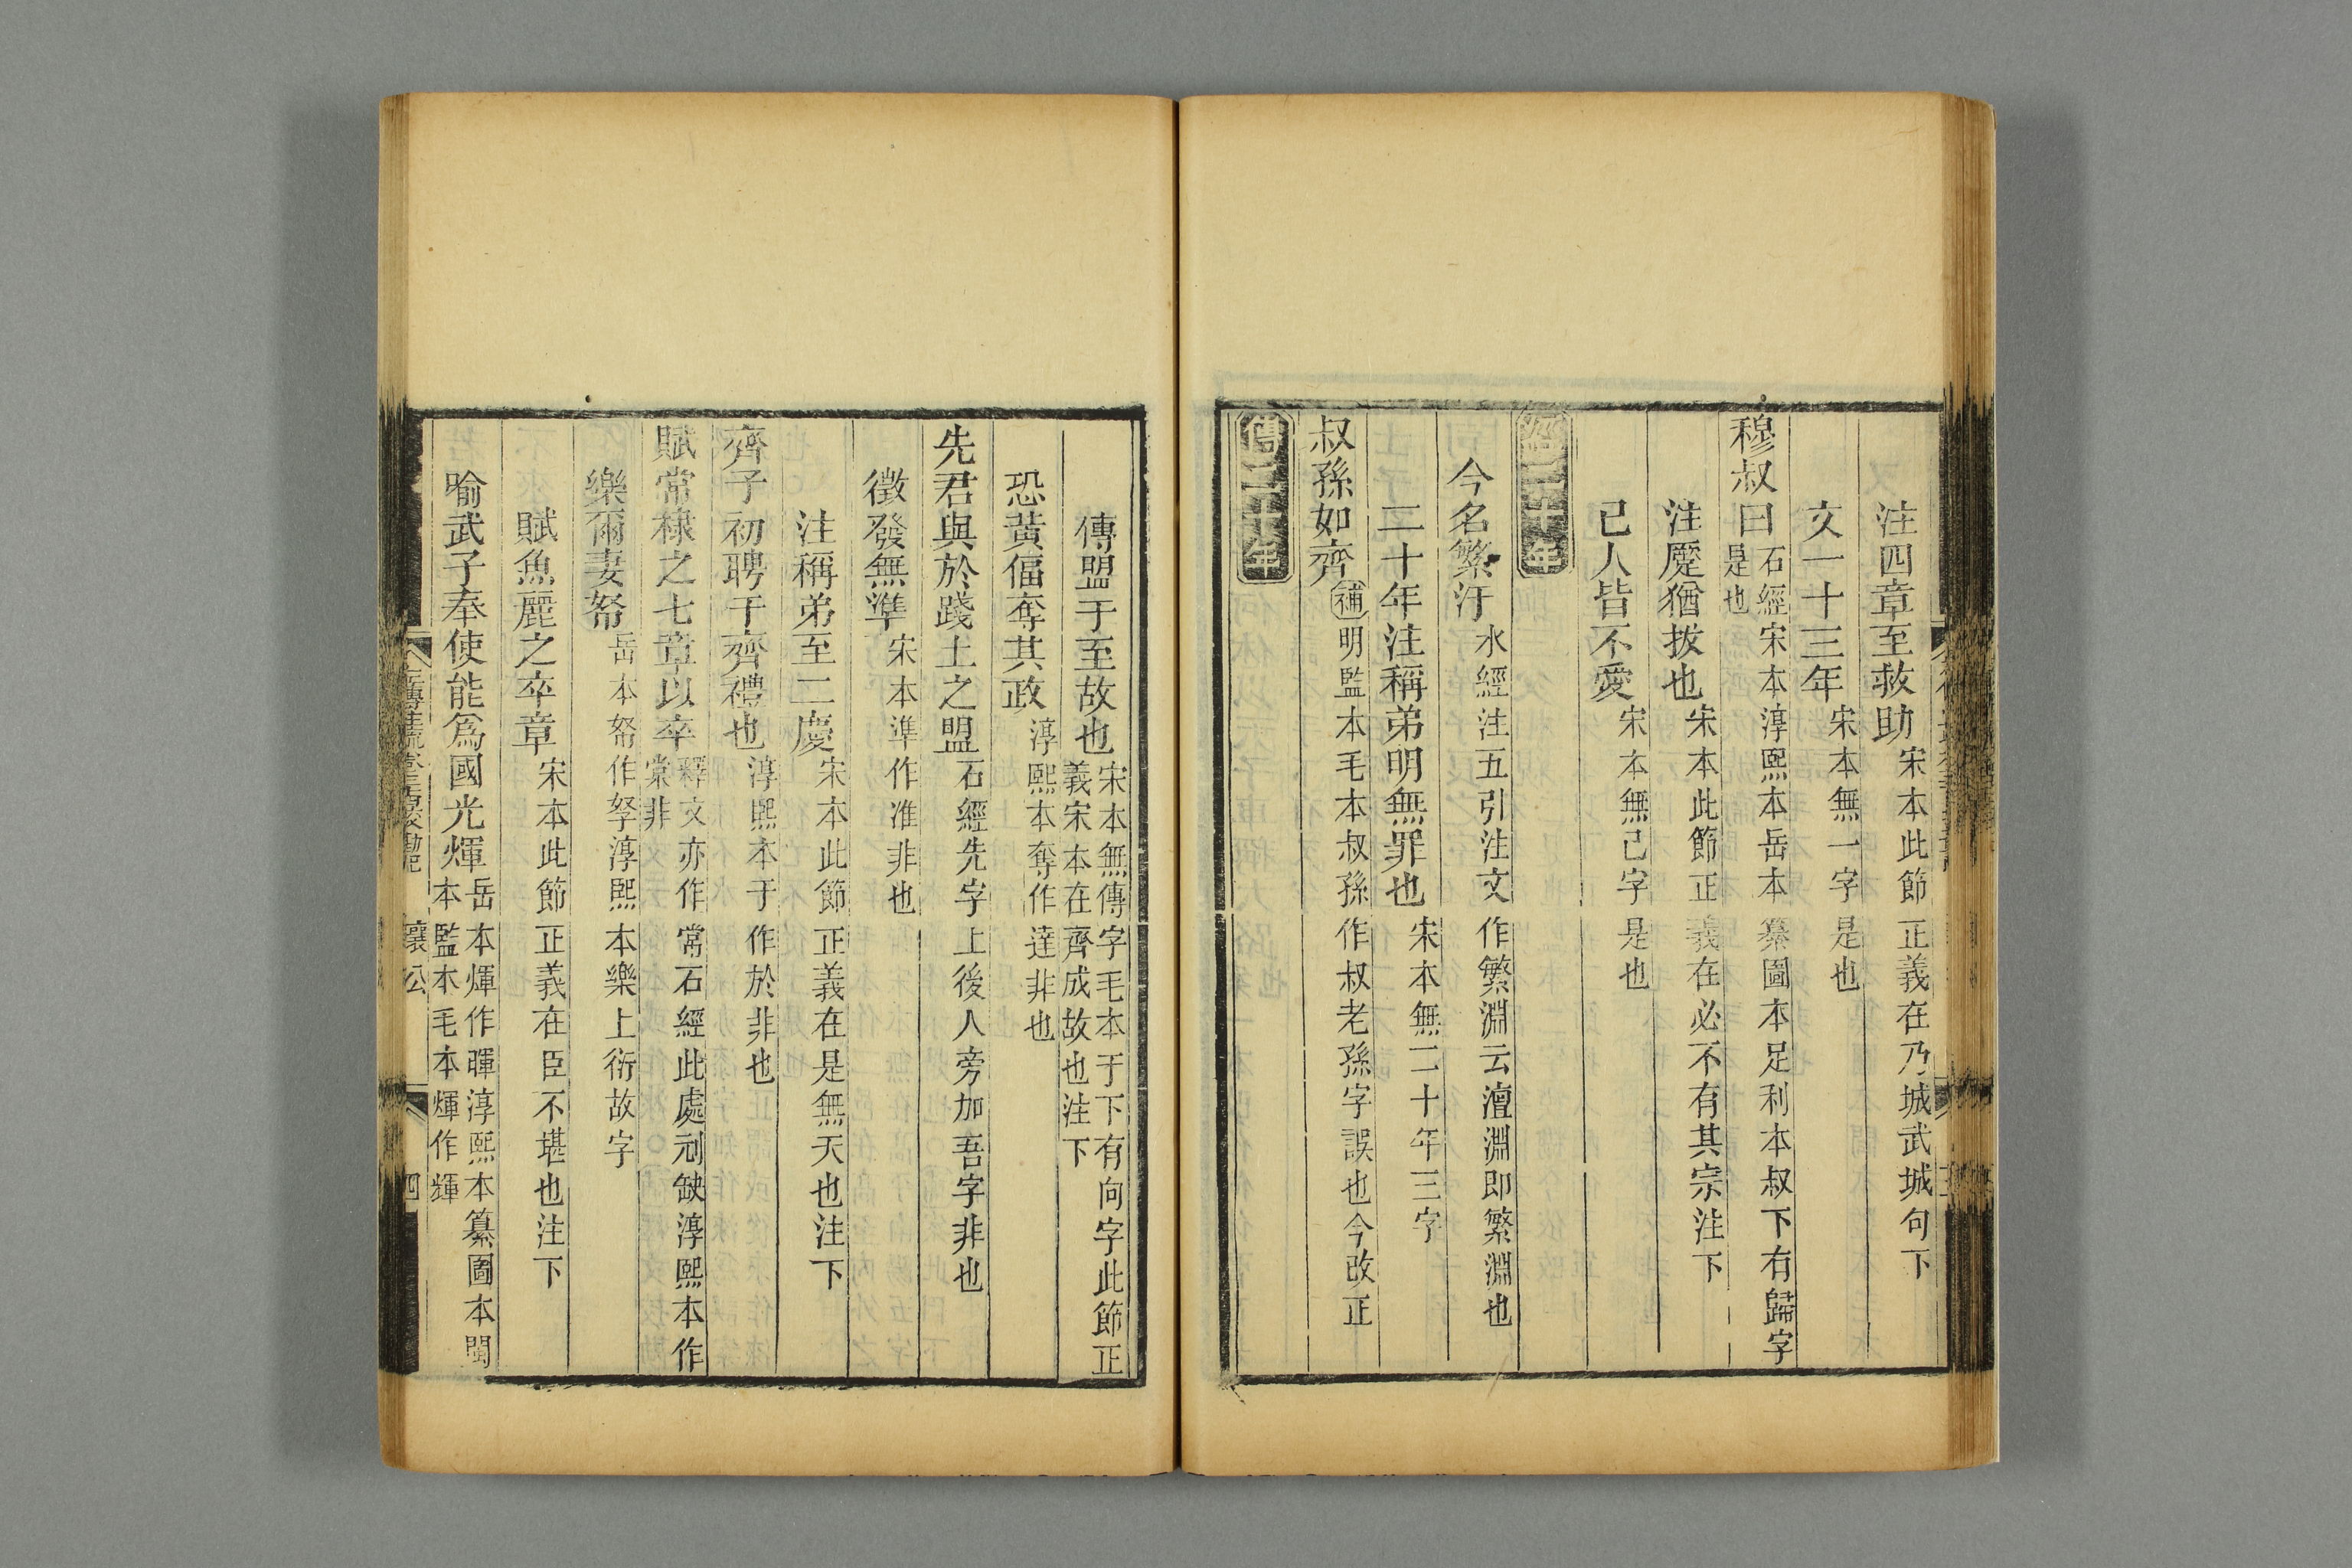 注四章至救助宋本此節正義在乃城武城句下
文一十三年宋本無一字是也
穆叔曰石經宋本淳熙本岳本纂圖本足利本叔下有歸字是也
注蹷猶拔也宋本此節正義在必不有其宗注下
己人皆不愛宋本無己字是也
經二十年
今名繁汙水經注五引注文作繁淵云澶淵即繁淵也
二十年注稱弟明無罪也宋本無二十年三字
叔孫如齊補明監本毛本叔孫作叔老孫字誤也今改正
傳二十年
傳盟于至故也宋本無傳字毛本于下有向字此節正義宋本在齊成故也注下
恐黃偪奪其政淳熙本奪作達非也
先君與於踐土之盟石經先字上後人旁加吾字非也
徵發無準宋本準作准非也
注稱弟至二慶宋本此節正義在是無天也注下
齊子初聘于齊禮也淳熙本于作於非也
賦常棣之七章以卒釋文亦作常石經此處刓缺淳熙本作棠非
樂爾妻帑岳本帑作孥淳熙本樂上衍故字
賦魚麗之卒章宋本此節正義在臣不堪也注下
喻武子奉使能爲國光煇岳本煇作暉淳熙本纂圖本閩本監本毛本煇作輝
襄公
四